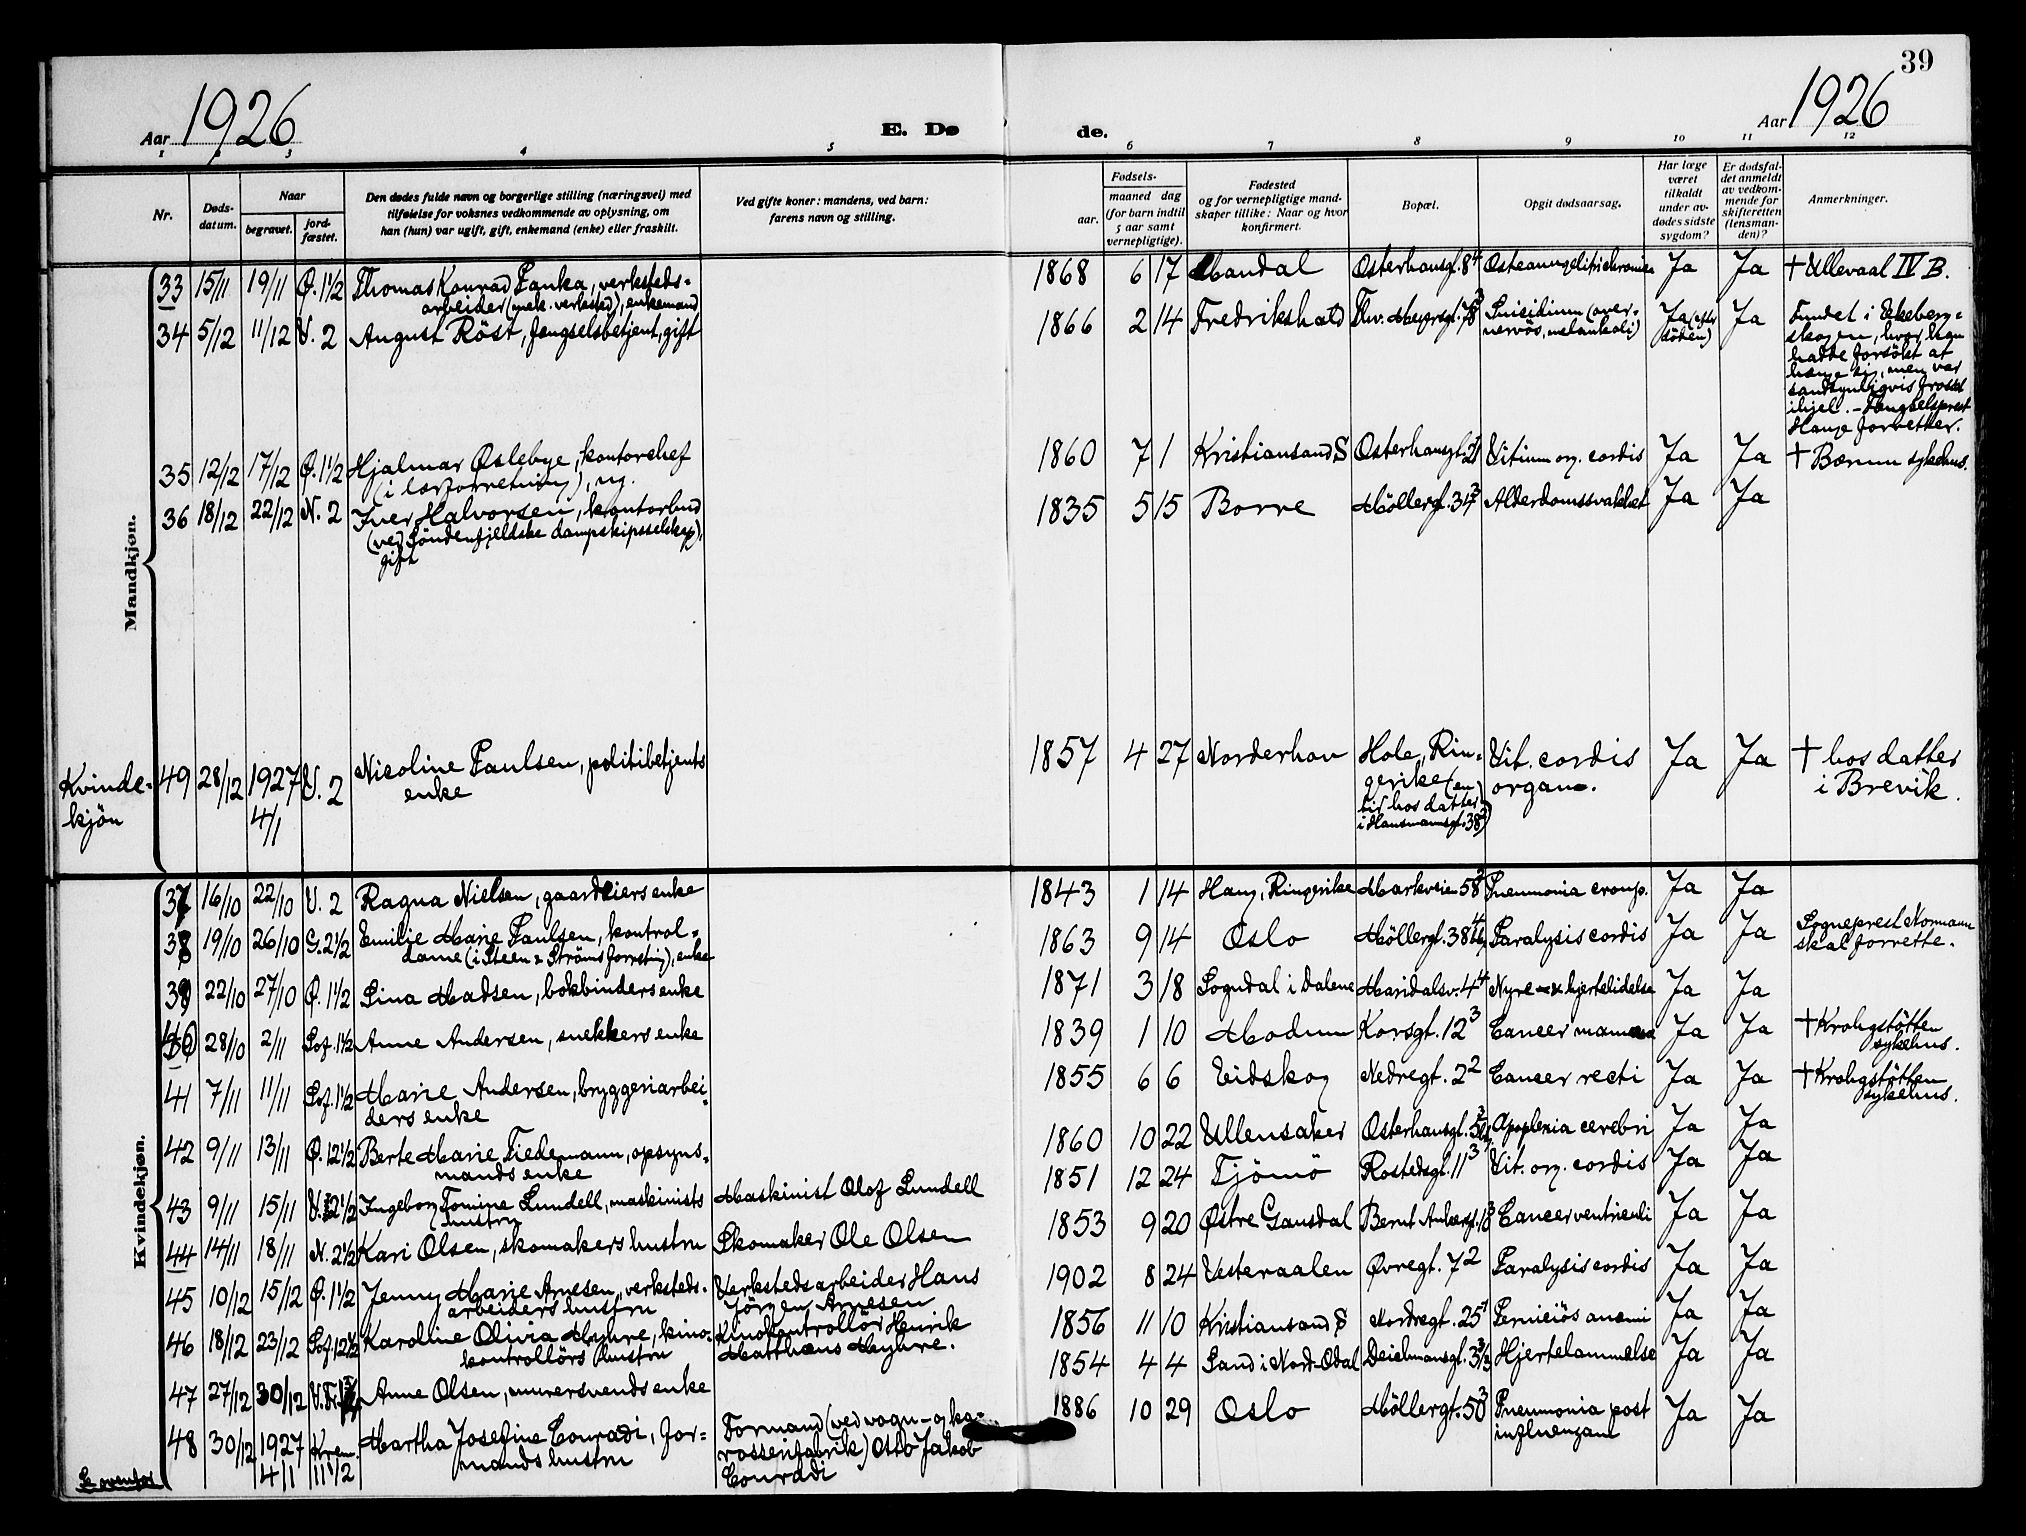 39
Aar 1926
E. Dø
de.
Aar 1926
1 2 3 4 5 6 7 8 9 10 11 12
Nr.
Døds-
datum.
Naar
begravet.
jord-
fæstet.
Den dødes fulde navn og borgerlige stilling (næringsvei) med
tilføielse for voksnes vedkommende av oplysning, om
han (hun) var ugift, gift, enkemand (enke) eller fraskilt.
Ved gifte koner: mandens, ved barn:
farens navn og stilling.
Fødsels-
aar.
maaned dag
(for barn indtil
5 aar samt
vernepligtige).
Fødested
og for vernepligtige mand-
skaper tillike: Naar og hvor
konfirmert.
Bopæl.
Opgit dødsaarsag.
Har læge
været
tilkaldt
under av-
dødes sidste
sygdom?
Er dødsfal-
det anmeldt
av vedkom-
mende for
skifteretten
(lensman-
den)?
Anmerkninger.
Mandkjøn.
33 15/11 19/11 Ø. 1½ Thomas Konrad Panka, verksteds-
arbeider (mek. verksted), enkemand
1868 6 17 Mandal Osterhausgt. 8⁴ Ja Ja † Ullevaal IV B.
34 5/12 11/12 V. 2 August Röst, fengselsbetjent, gift
1866 2 14 Fredrikshald Thv. Meyersgt. Suicidium (over-
nervös, melankoli) Ja (efter
döden) Ja Fundet i Ekeberg-
skogen, hvor han
hadde forsökt at
hænge sig, men var
sandsynligvis frosset
ihjel. - Fængselsprest
Hauge forretter.
35 12/12 17/12 Ø. 1½ Hjalmar Oslebye, kontorchef
(i lærforretning), ug.
1860 7 1 Kristiansand S Osterhausgt. Vitium org. cordis Ja Ja † Bærum sykehus.
36 18/12 22/12 N. 2 Iver Halvorsen, kontorbud
(ved Söndenfjeldske dampskipsselskap),
gift
1835 5 15 Borre Möllergt. 34³ Alderdomssvakhet Ja Ja
Kvinde-
kjön
49 28/12 1927
4/1 V. 2 Nicoline Paulsen, politibetjents
enke
1857 4 27 Norderhov Hole, Rin-
gerike (en
tid hos datter
i Hausmannsgt. 38) Vit. cordis
organ. Ja Ja † hos datter
i Brevik.
Kvindekjøn.
37 16/10 22/10 V. 2 Ragna Nielsen, gaardeiers enke
1843 1 14 Haug, Ringerike Markveien 58² Pneumonia croup. Ja Ja
38 19/10 26/10 G. 2½ Emilie Marie Paulsen, kontrol-
dame (i Steen & Ströms forretning), enke
1863 9 14 Oslo Möllergt. 38 Paralysis cordis Ja Ja Sogneprest Normann
skal forrette.
39 22/10 27/10 Ø. 1½ Lina Madsen, bokbinders enke
1871 3 18 Sogndal i Dalene Maridalsv. 4⁴ Nyre- & hjertelidelse Ja Ja
40 28/10 2/11 Sof. 1½ Anne Andersen, snekkers enke
1839 1 10 Modum Korsgt. 12³ Cancer mammae Ja Ja † Krohgstötten
sykehus.
41 7/11 11/11 Sof. 1½ Marie Andersen, bryggeriarbei-
ders enke
1855 6 6 Eidskog Nedregt. 2² Cancer recti Ja Ja † Krohgstötten
sykehus.
42 9/11 13/11 Ø. 12½ Berte Marie Tiedemann, opsyns-
mands enke
1860 10 22 Ullensaker Osterhausgt. Apoplexia cerebri Ja Ja
43 9/11 15/11 V. 2½ Ingeborg Tomine Lundell, maskinists
hustru Maskinist Olof Lundell
1851 12 24 Tjömö Rostedsgt. 11³ Vit. org. cordis Ja Ja
44 14/11 18/11 N. 2½ Kari Olsen, skomakers hustru Skomaker Ole Olsen
1853 9 20 Østre Gausdal Bernt Ankersgt. Cancer ventriculi Ja Ja
45 10/12 15/12 Ø. 1½ Jenny Marie Arnesen, verksteds-
arbeiders hustru Verkstedsarbeider Hans
Jörgen Arnesen
1902 8 24 Vesteraalen Øvregt. 7² Paralysis cordis Ja Ja
46 18/12 23/12 Sof. 12½ Karoline Olivia Myhre, kino-
kontrollörs hustru Kinokontrollör Henrik
Matthæus Myhre.
1856 11 10 Kristiansand S Nordregt. 25¹ Perniciös anæmi Ja Ja
47 27/12 30/12 Anne Olsen, murersvends enke
1854 4 4 Sand i Nord-Odal Deichmansgt. Hjertelammelse Ja Ja
48 30/12 1927
4/1 Krem.
11½ Martha Josefine Conradi, for-
mands hustru Formand (ved vogn- og ka-
rosserifabrik) Otto Jakob
Conradi
1886 10 29 Oslo Möllergt. 50³ Pneumonia post
influenzam Ja Ja
Se ovenfor